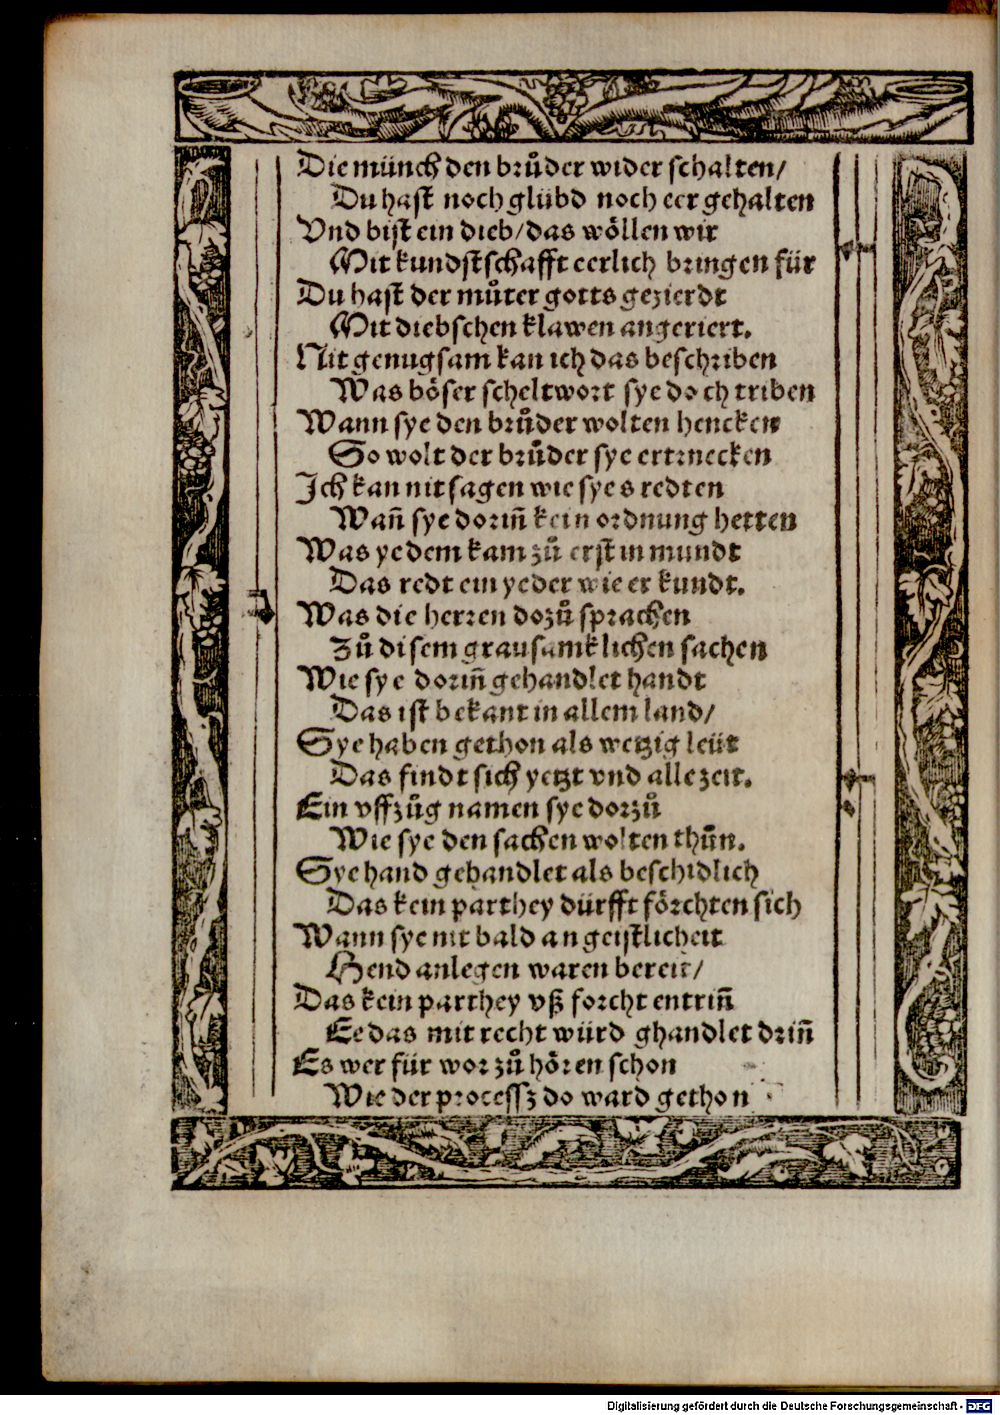 Die münch den brůder wider schalten/
Du hast noch glübd noch eer gehalten
Vnd bist ein dieb/das wöllen wir
Mit kundstschafft eerlich bringen für
Du hast der můter gotts gezierdt
Mit diebschen klawen angeriert.
Nit genugsam kan ich das beschriben
Was böser scheltwort sye doch triben
Wann sye den brůder wolten hencken
So wolt der brůder sye ertrnecken
Ich kan nit sagen wie sye s redten
Wañ sye doriñ kein ordnung hetten
Was yedem kam zů erst in mundt
Das redt ein yeder wie er kundt.
Was die herren dozů sprachen
Zů disem grausamklichen sachen
Wie sye doriñ gehandlet handt
Das ist bekant in allem land/
Sye haben gethon als wetzig leüt
Das findt sich yetzt vnd alle zeit.
Ein vffzůg namen sye dorzů
Wie sye den sachen wolten thůn.
Sye hand gehandlet als beschidlich
Das kein parthey dürfft förchten sich
Wann sye nit bald an geistlicheit
Hend anlegen waren bereit/
Das kein parthey vß forcht entriñ
Ee das mit recht würd ghandlet driñ
Es wer für wor zů hören schon
Wie der processz do ward gethon
Digitalisierung gefördert durch die Deutsche Forschungsgemeinschaft - DFG